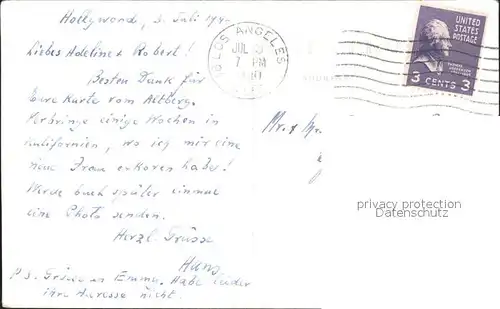 Hollywood, 3. Juli 194-
Liebes Adeline & Robert!
Besten Dank für
Eure Karte vom Altberg.
Verbringe einige Wochen in
Kalifornien, wo ich mir eine
neue Frau erkoren habe!
Werde Euch später einmal
eine Photo senden.
Herzl. Grüsse
Hans
P.S. Grüsse an Emma. Habe leider
ihre Adresse nicht.
LOS ANGELES
JUL
7 PM
UNITED
STATES
POSTAGE
3 CENTS 3
Mr. & Mr
privacy protection
Datenschutz